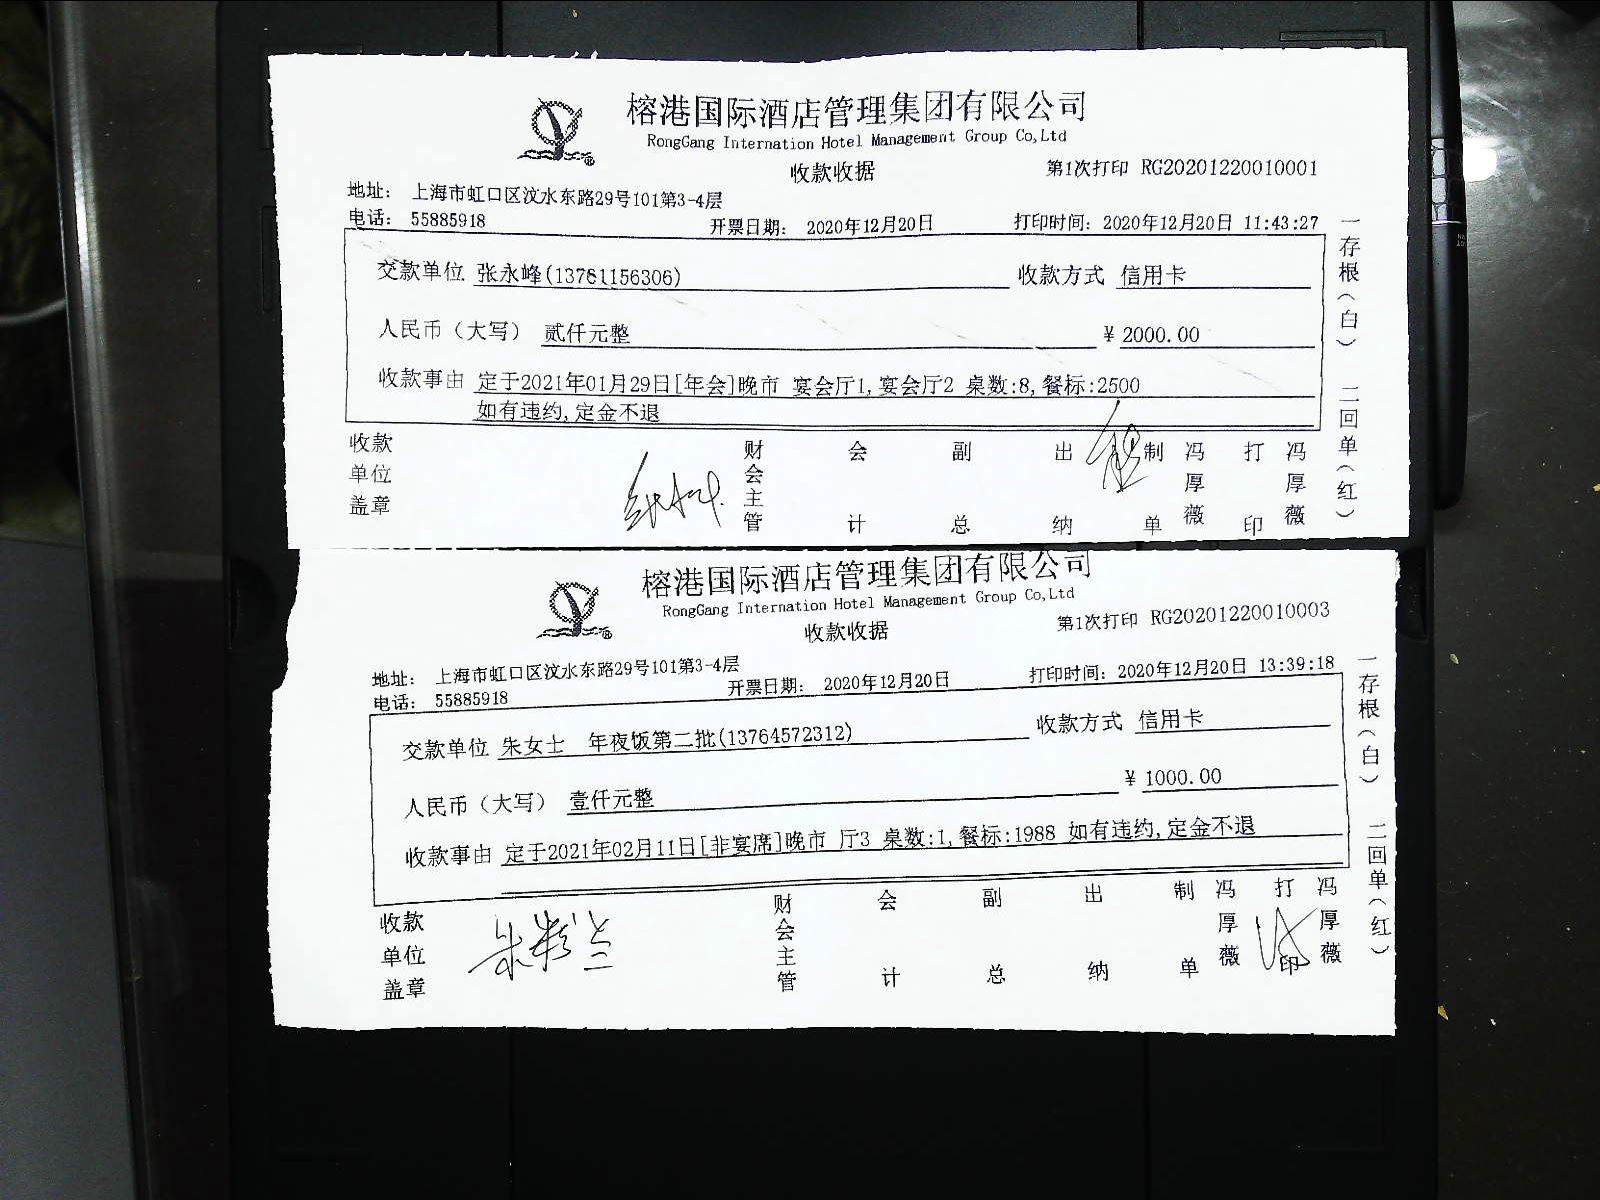 榕港国际酒店管理集团有限公司
RongGang Internation Hotel Management Group Co,Ltd
收款收据
第1次打印 RG20201220010001
地址： 上海市虹口区汶水东路29号101第3-4层
电话： 55885918 开票日期： 2020年12月20日 打印时间：2020年12月20日 11:43:27
交款单位 张永峰(13761156306) 收款方式 信用卡
人民币（大写） 贰仟元整 ￥2000.00
收款事由 定于2021年01月29日[年会]晚市 宴会厅1,宴会厅2 桌数:8,餐标:2500
如有违约,定金不退
收款单位盖章 财会主管 会计 副总 出纳 制单 冯厚薇 打印 冯厚薇
一存根（白） 二回单（红）
榕港国际酒店管理集团有限公司
RongGang Internation Hotel Management Group Co,Ltd
收款收据
第1次打印 RG20201220010003
地址： 上海市虹口区汶水东路29号101第3-4层
电话： 55885918 开票日期： 2020年12月20日 打印时间：2020年12月20日 13:39:18
交款单位 朱女士 年夜饭第二批(13764572312) 收款方式 信用卡
人民币（大写） 壹仟元整 ￥1000.00
收款事由 定于2021年02月11日[非宴席]晚市 厅3 桌数:1,餐标:1988 如有违约,定金不退
收款单位盖章 财会主管 会计 副总 出纳 制单 冯厚薇 打印 冯厚薇
一存根（白） 二回单（红）